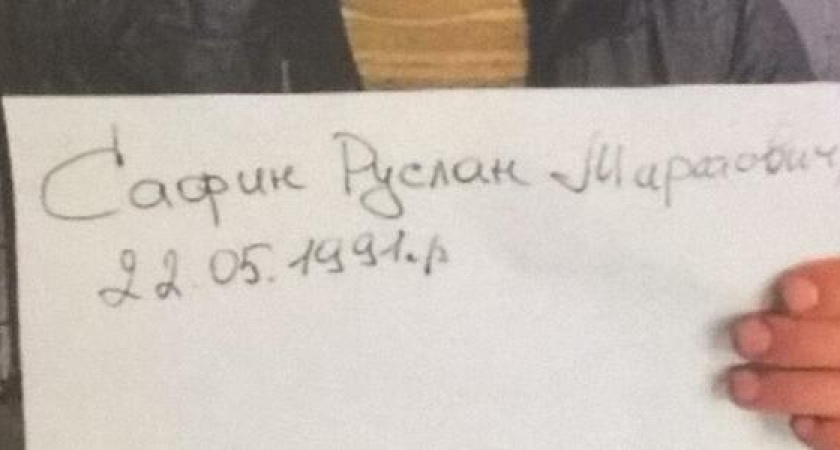 Сафин Руслан Маратович,
22.05.1991.р